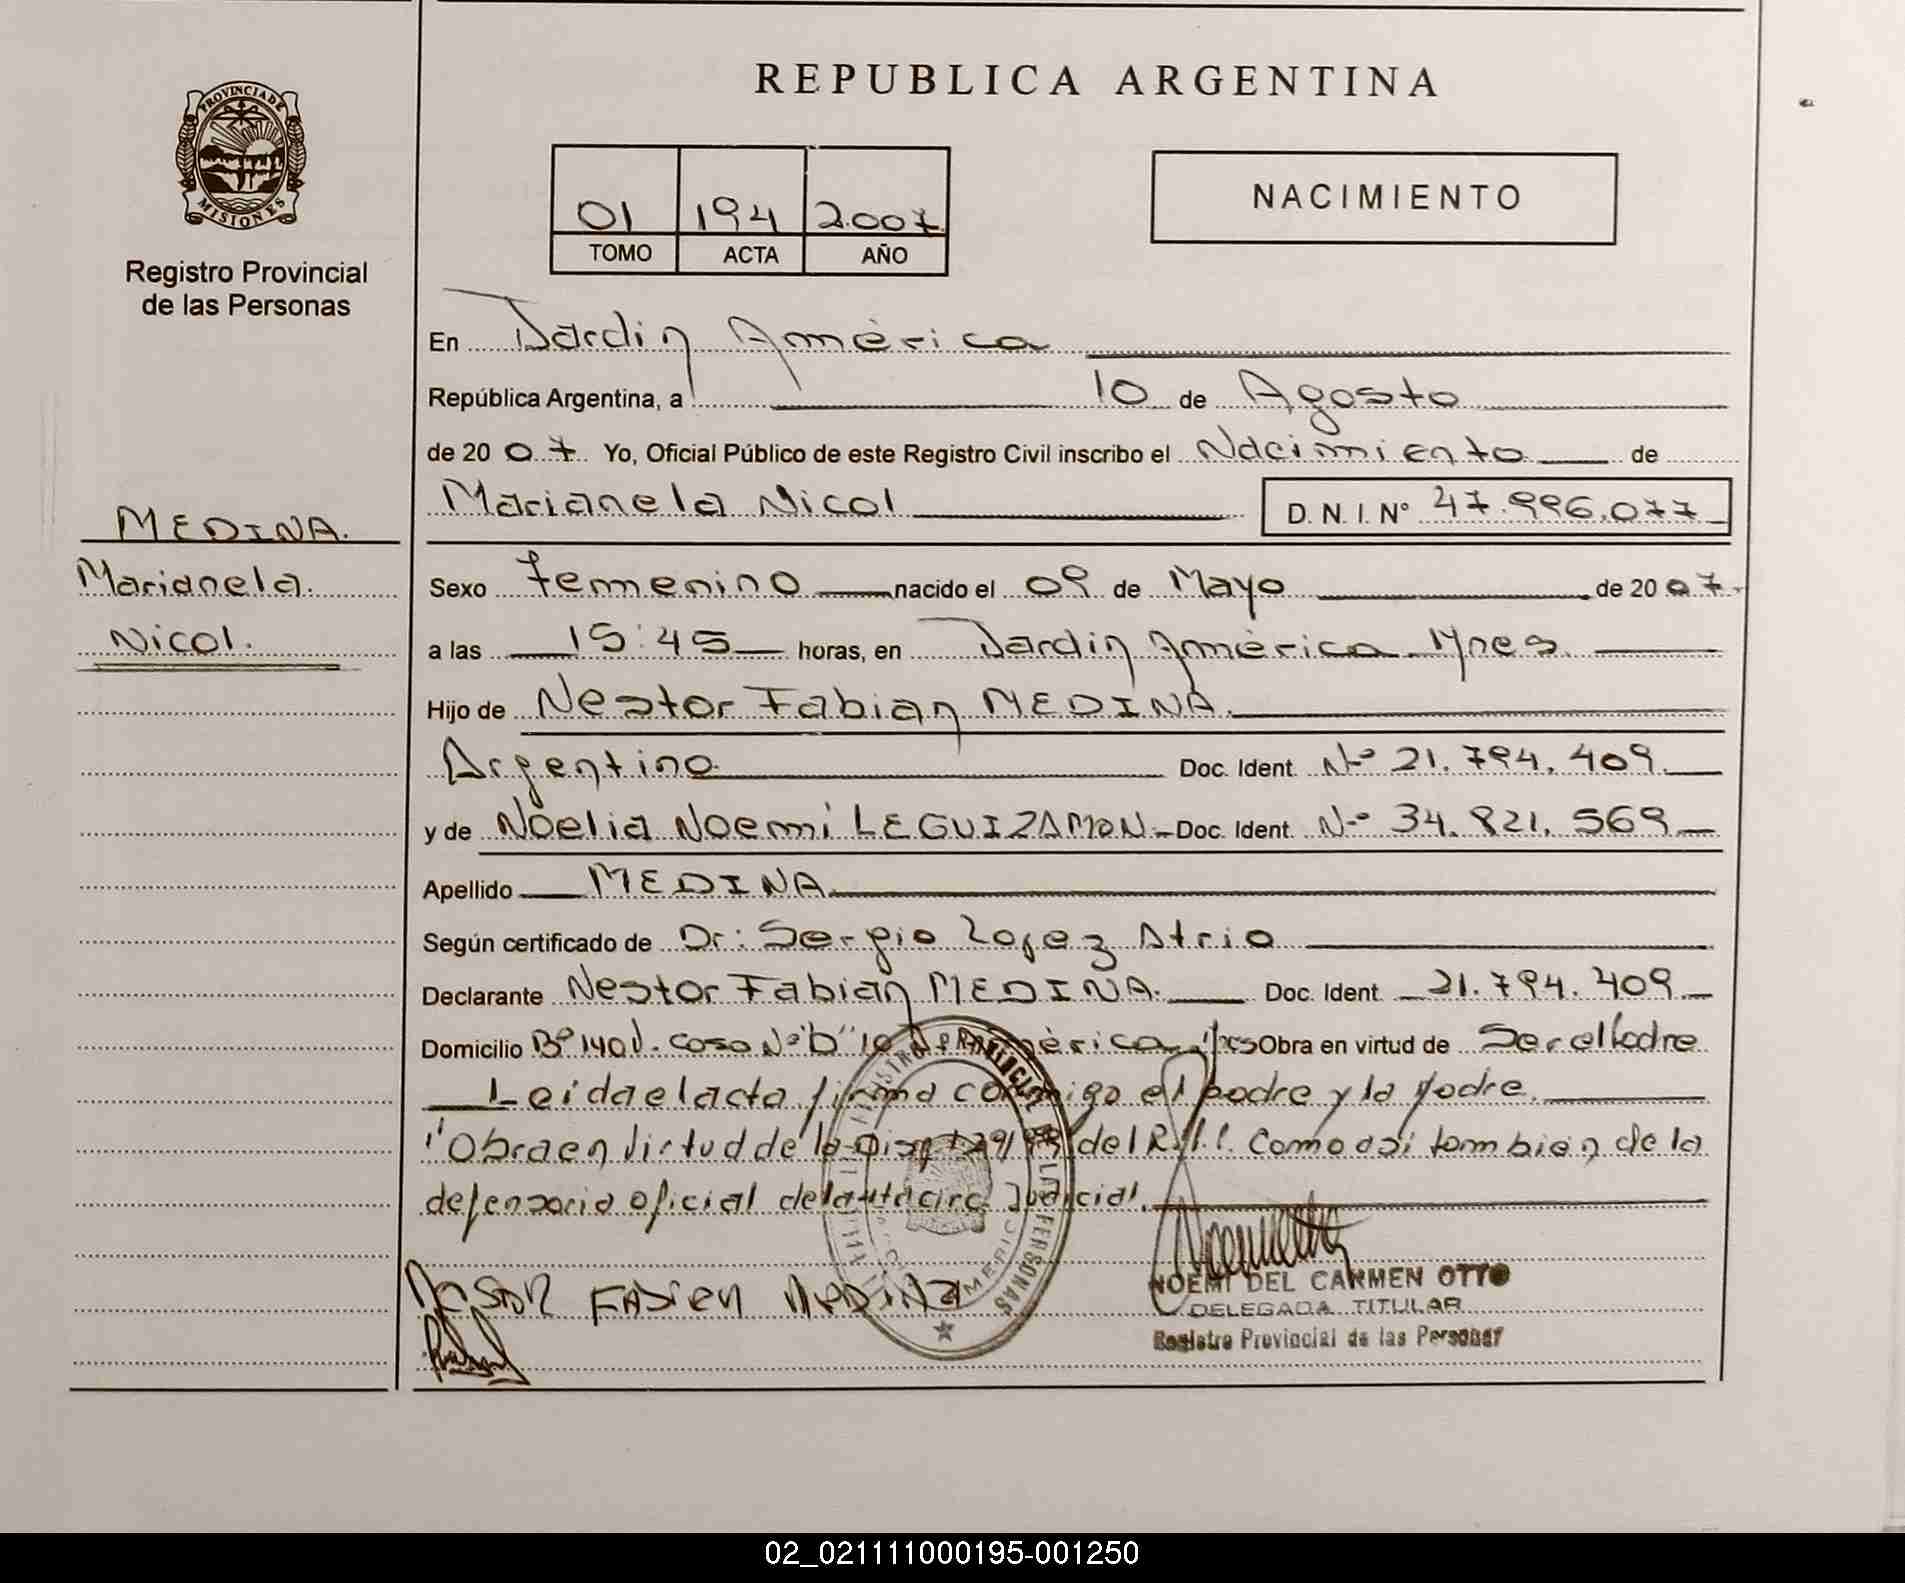 REPUBLICA ARGENTINA
PROVINCIA DE
MISIONES
Registro Provincial
de las Personas
01 194 2.007
TOMO ACTA AÑO
NACIMIENTO
En Jardin América
República Argentina, a 10 de Agosto
de 20 07 Yo, Oficial Público de este Registro Civil inscribo el Nacimiento de
Marianela Nicol D. N. I. N° 47.996.077
MEDINA.
Marianela.
Nicol.
Sexo femenino nacido el 09 de Mayo de 20 07
a las 15:45 horas, en Jardin América Mnes.
Hijo de Nestor Fabian MEDINA.
Argentino Doc. Ident. Nº 21.794.409.
y de Noelia Noemi LEGUIZAMON Doc. Ident. Nº 34.821.569
Apellido MEDINA
Según certificado de Dr: Sergio Lopez Atrio
Declarante Nestor Fabian MEDINA. Doc. Ident. 21.794.409
Domicilio Bº 140 V. casa Nº "b" 10 América Mnes Obra en virtud de Ser el Padre
Leida el acta firma conmigo el padre y la
"Obra en virtud de la Disp del R. Como asi tambien de la
defensoria oficial de la circ. Judicial.
NESTOR FABIEN MEDINA
NOEMI DEL CARMEN OTTO
DELEGADA TITULAR
Registro Provincial de las Personas
02_021111000195-001250